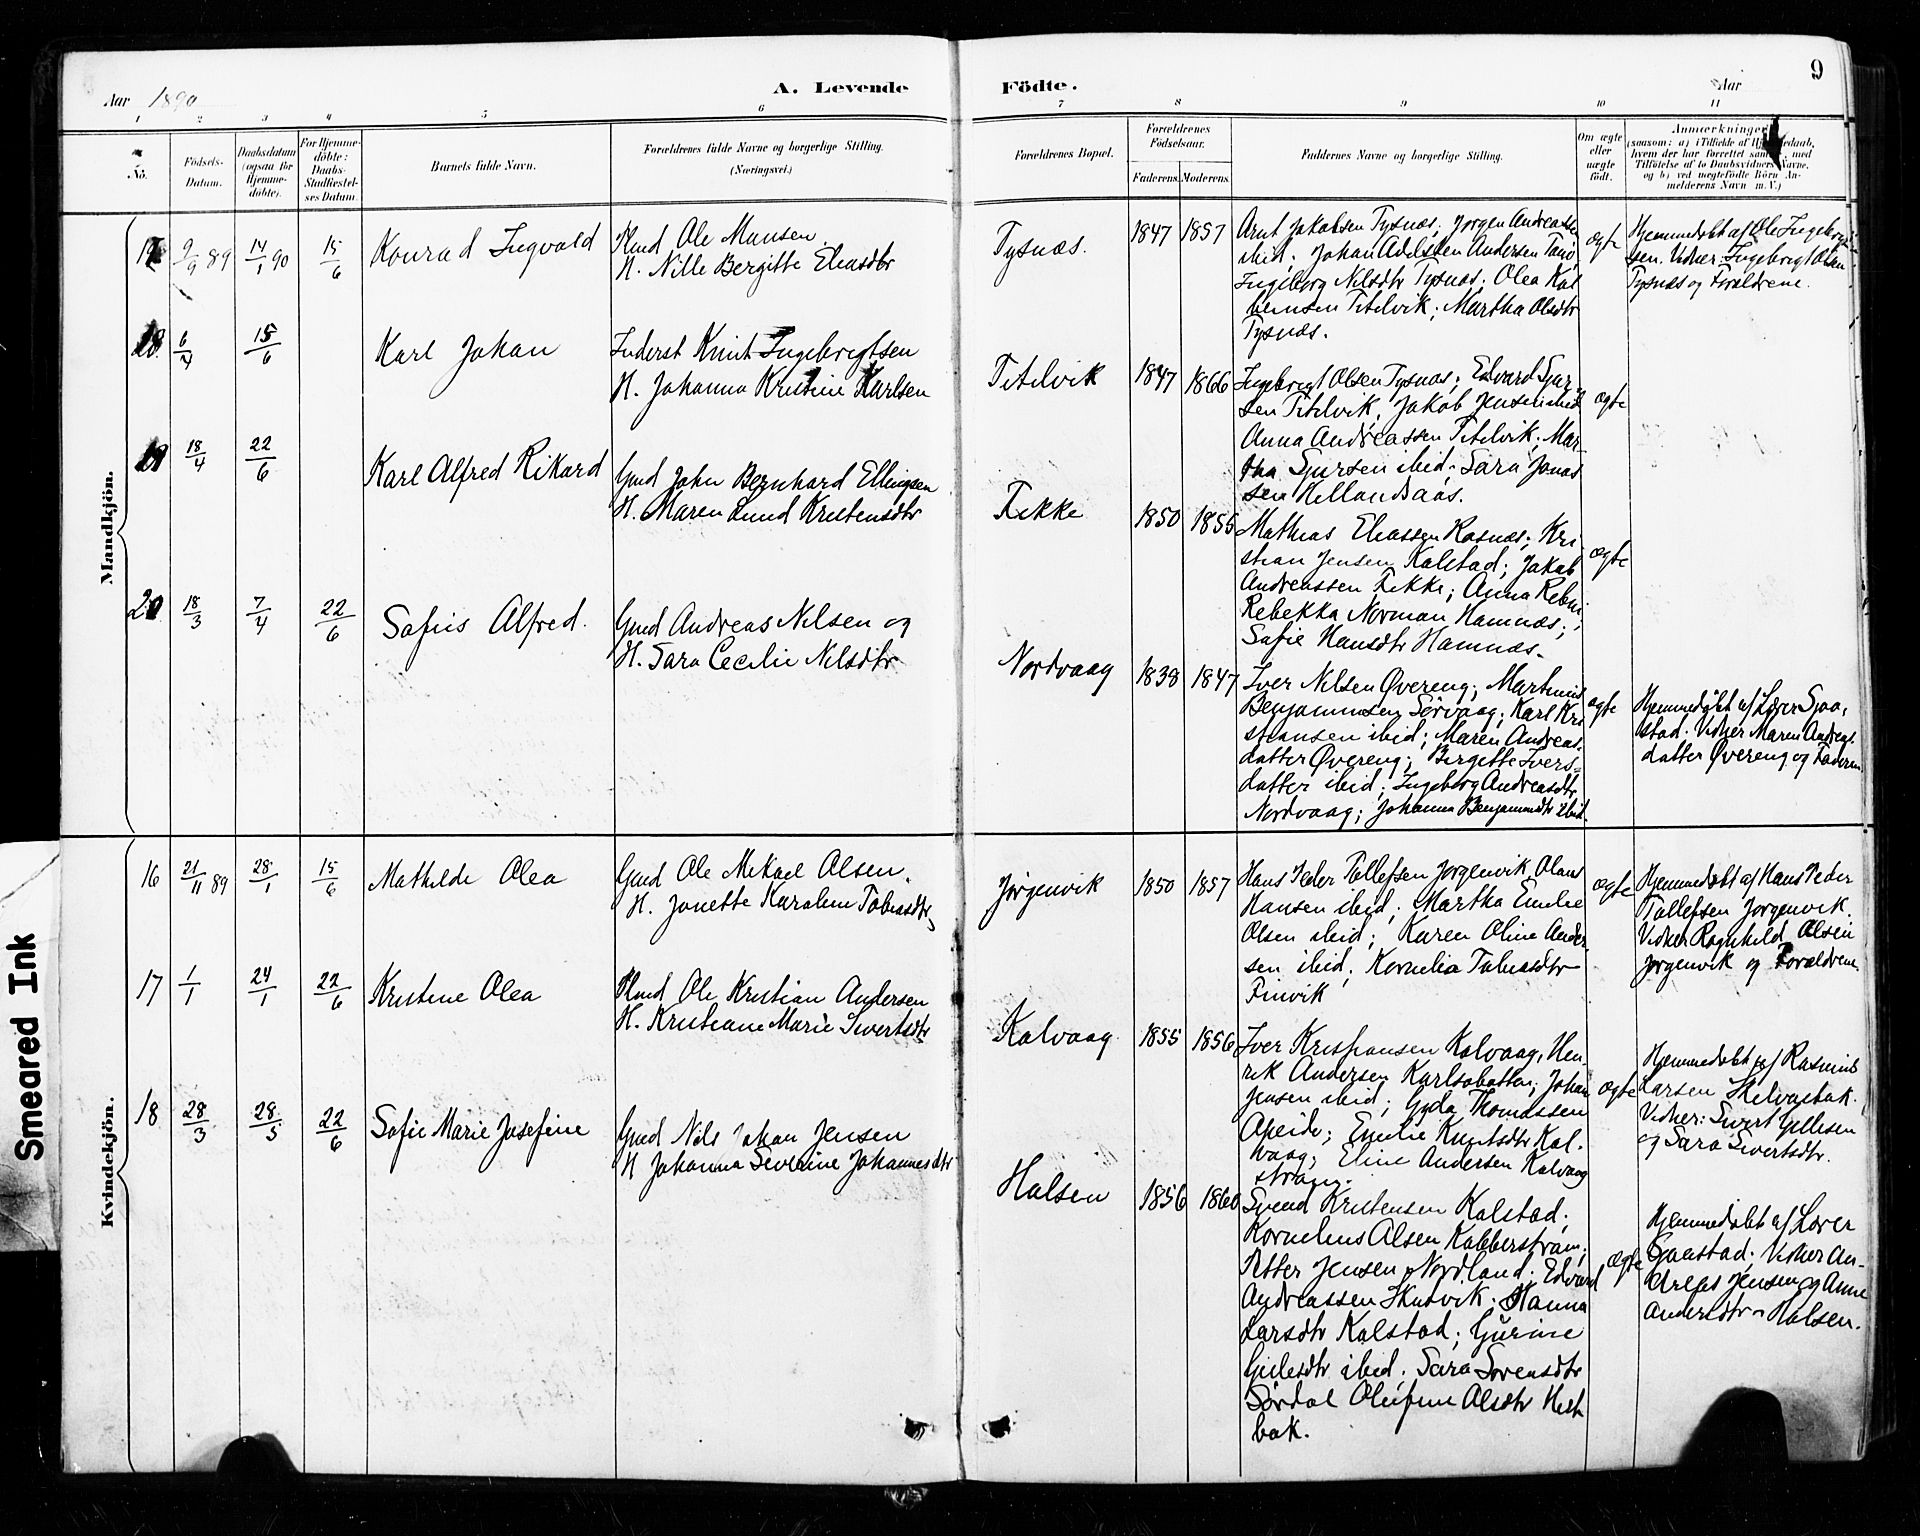 9
Aar 1890
A. Levende
Födte.
Aar
1 2 3 4 5 6 7 8 9 10 11
No.
Födsels-Datum.
Daabsdatum (ogsaa for Hjemmedöbte).
For Hjemmedöbte: Daabs-Stadfæstelses Datum.
Barnets fulde Navn.
Forældrenes fulde Navne og borgerlige Stilling.
(Næringsvei.)
Forældrenes Bopæl.
Forældrenes Födselsaar.
Faderens. Moderens.
Faddernes Navne og borgerlige Stilling.
Om ægte eller uægte födt.
Anmærkninger
(saasom: a) i Tilfælde af Hjemmedaab, hvem der har forrettet samme, med Tilföielse af to Daabsvidners Navne, og b) ved uægtefödte Börn Anmelderens Navn m. V.)
Mandkjön.
17 9/9 89 14/1 90 15/6 Konrad Ingvald
Ole Monsen
H. Nille Bergitte Eliasdtr
Tysnæs. 1847 1857
Arnt Jakobsen Tysnæs, Jørgen Andreassen
ibid; Johan Adelsten Andersen
Ingeborg Nilsdtr Tysnæs; Olea
Titelvik; Martha Olsdtr
Tysnæs.
ægte
Hjemmedøbt af Ole Ingebrigt-
sen. Vidner: Ingebrigt Olsen
Tysnæs og Forældrene.
18 6/4 15/6 Karl Johan
Inderst Knut Ingebrigtsen
H. Johanna Kristine Karlsen
Titelvik 1847 1866
Ingebrigt Olsen Tysnæs; Edvard Sjur-
sen Titelvik, Jakob Jensen ibid
Anna Andreassen Titelvik; Mar-
tha Sjursen ibid; Sara Jonas
sen
ægte
19 18/4 22/6 Karl Alfred Rikard
Gmd John Bernhard Ellingsen
H. Maren Lund Kristensdtr
Fikke 1850 1855
Mathias Eliassen Rosnæs; Kri
stian Jensen Kalstad; Jakob
Andreassen Fikke; Anna
Rebekka Norman Hamnæs;
Sofie Hansdtr Hamnæs.
ægte
20 18/3 7/4 22/6 Sofus Alfred.
Gmd Andreas Nilsen og
H. Sara Cecilie Nilsdtr
Nordvaag 1838 1847
Iver Nilsen Øvereng; Martinus
Benjaminsen Sørvaag; Karl Kri
stiansen ibid; Maren Andreas-
datter Øvereng; Birgitte Ivers-
datter ibid; Ingeborg Andreasdtr
Nordvaag; Johanna Benjaminsdtr ibid.
ægte
Hjemmedøbt af Lærer Sjaa-
stad. Vidner Maren Andreas-
datter Øvereng og Faderen
Kvindekjön.
16 21/11 89 28/1 15/6 Mathilde Olea
Gmd Ole Mikael Olsen.
H. Jonette Karoline Tobiasdtr,
Jørgenvik 1850 1857
Hans Peder Tollefsen Jørgenvik, Olaus
Hansen ibid; Martha Emilie
Olsen ibid; Karen Oline Ander-
sen ibid; Kornelia Tobiasdtr
Finvik
ægte
Hjemmedøbt af Hans Peder
Tollefsen Jørgenvik.
Vidner Ragnhild Olsen
Jørgenvik og Forældrene
17 1/1 24/1 22/6 Kristine Olea
Ole Kristian Andersen
H. Kristiane Marie Sivertsdtr
Kalvaag 1855 1856
Iver Kristiansen Kalvaag, Hen
rik Andersen Karlsobotten; Johan
Jensen ibid; Gyda Thomassen
Apeide; Emilie Knutsdtr Kal-
vaag; Eline Andersen Kalvaag
strøm.
ægte
Hjemmedøbt af Rasmus
Larsen
Vidner: Sivert
og Sara Sivertsdtr.
18 28/3 28/5 22/6 Sofie Marie Josefine
Gmd Nils Johan Jensen
H Johanna Severine Johannesdtr
Halsen 1856 1860
Svend Kristensen Kalstad;
Kornelius Olsen Kobberstrøm;
Petter Jensen Nordland; Edvard
Andreassen; Hanna
Larsdtr Kalstad; Gurine
ibid; Sara Sørensdtr
Sørdal Olufine Olsdtr Hest
bak.
ægte
Hjemmedøbt af Lærer
Sjaastad; Vidner An-
dreas Jensen og Anne
Andersdtr Halsen.
Smeared Ink